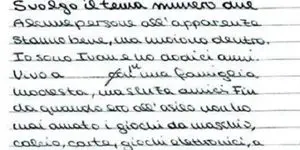 Svolgo il tema numero due
Alcune persone all'apparenza
stanno bene, ma muoiono dentro.
Io sono Ivan e ho dodici anni.
Vivo a in una famiglia
modesta, ma senza amici. Fin
da quando ero all'asilo non ho
mai amato i giochi da maschio,
calcio, carte, giochi elettronici, a